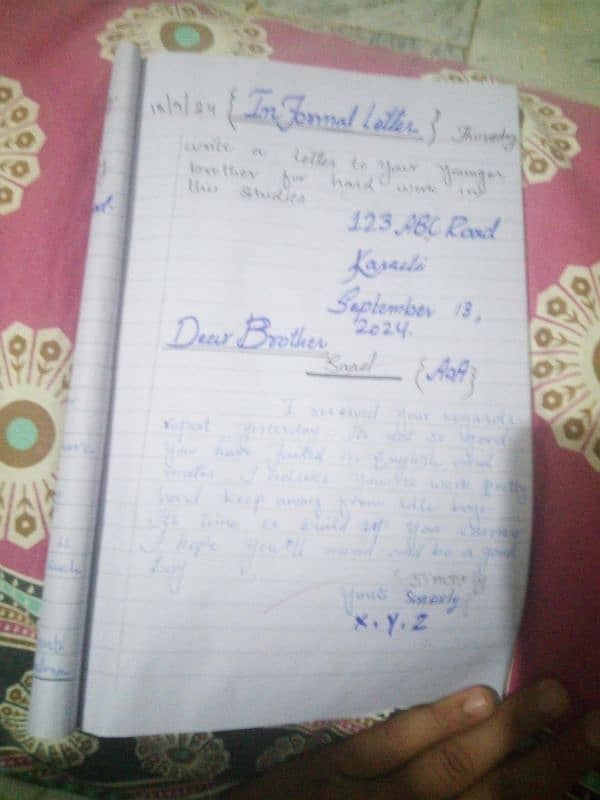 { InFormal Letter } Thursday
write a letter to your younger
brother for hard work in
his studies
123 ABC Road
Karachi
September 13,
2024.
Dear Brother
Saad { AOA }
I received your
report yesterday. It's not so good
you have failed in English and
maths. I advise you to work pretty
hard keep away from idle boys.
Its time to build up your carrier
I hope you'll mind and be a good
boy
sincerely
yours Sincerely
X. Y. Z